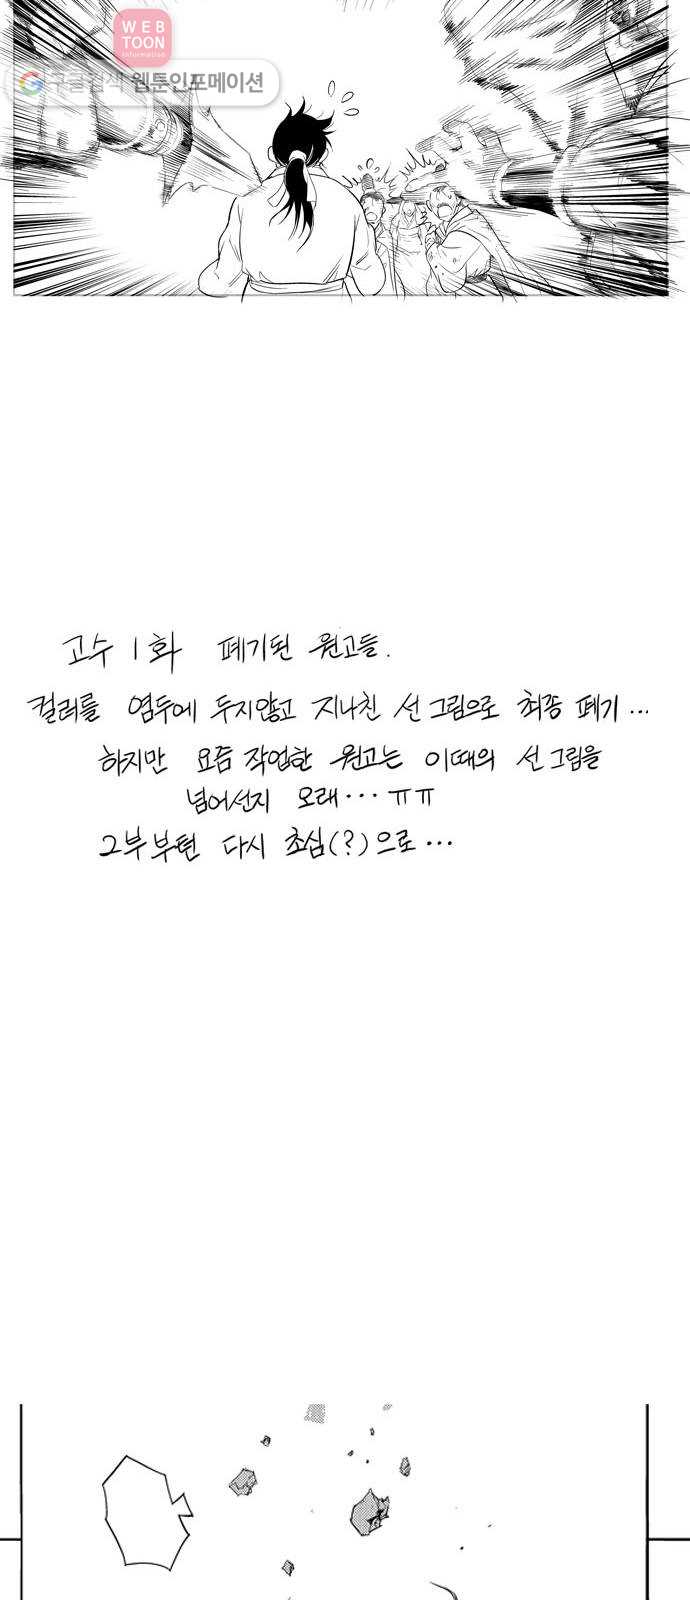 WEB
TOON
Information
구글검색 웹툰인포메이션
고수 1화 폐기된 원고들.
컬러를 염두에 두지않고 지나친 선 그림으로 최종 폐기...
하지만 요즘 작업한 원고는 이때의 선 그림을
넘어선지 오래... ㅠㅠ
2부부턴 다시 초심(?)으로...